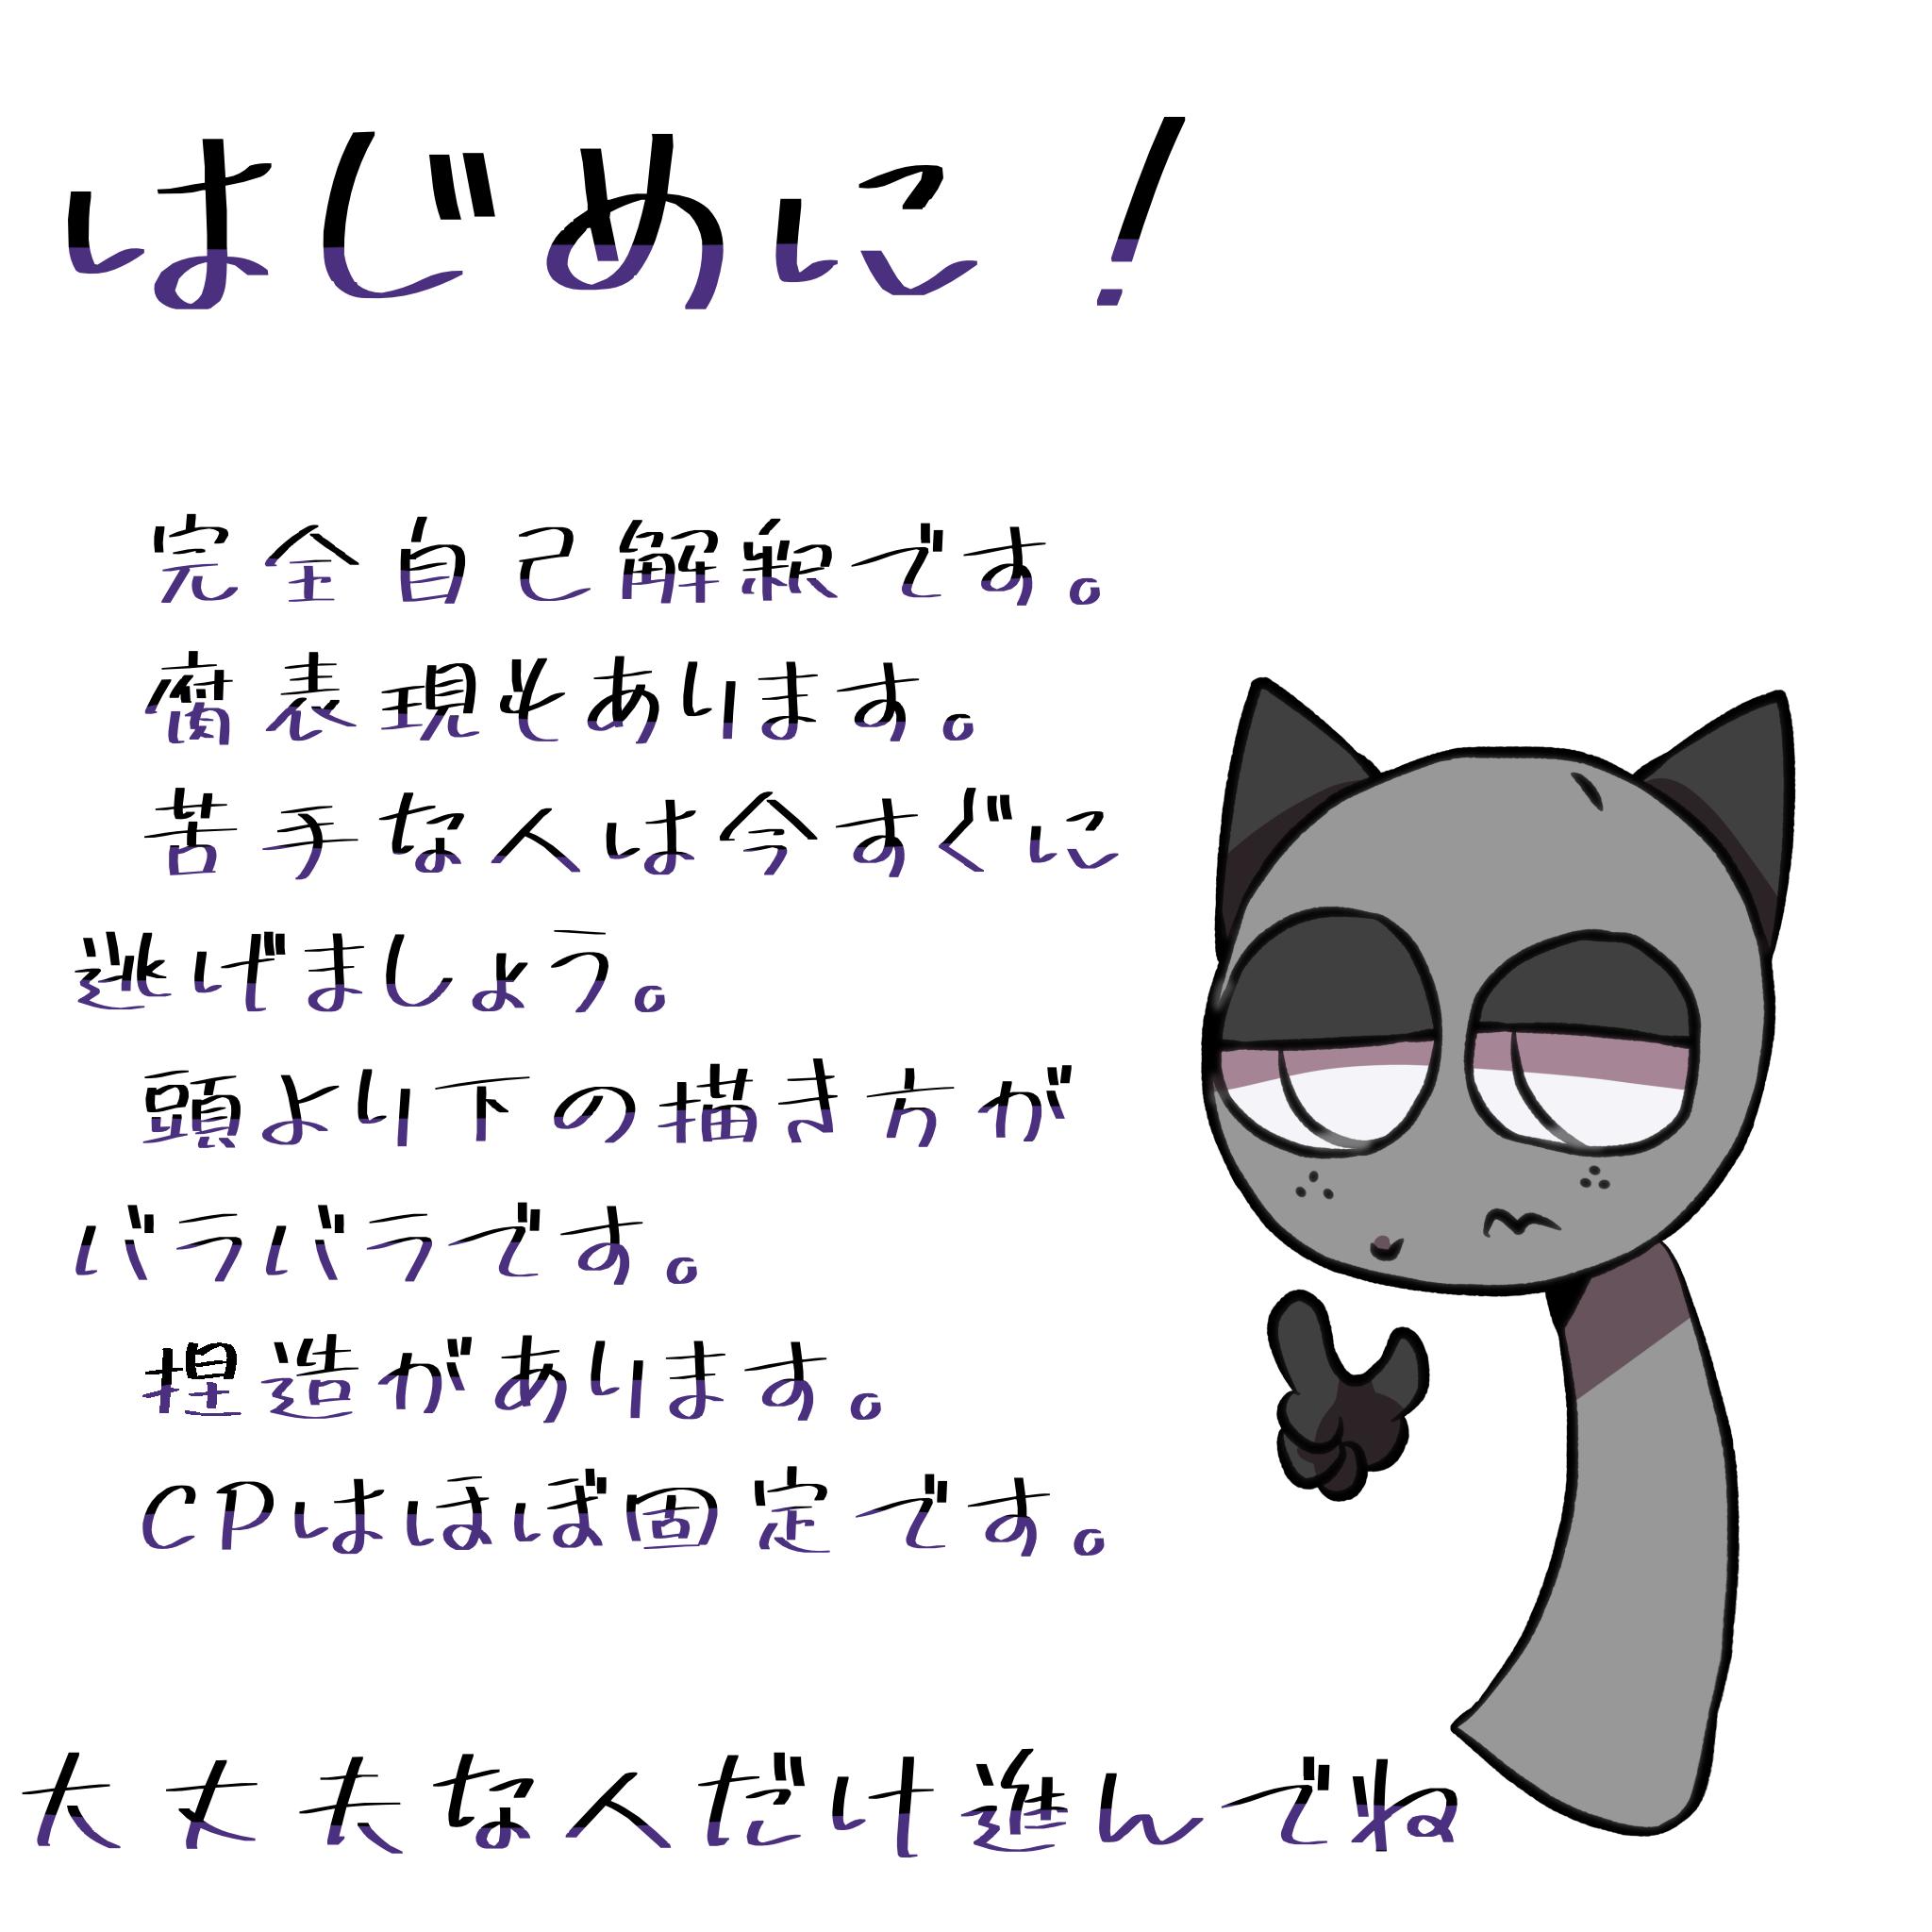 はじめに!
完全自己解釈です。
腐表現もあります。
苦手な人は今すぐに
逃げましょう。
頭より下の描き方が
バラバラです。
捏造があります。
CPはほぼ固定です。
大丈夫な人だけ進んでね